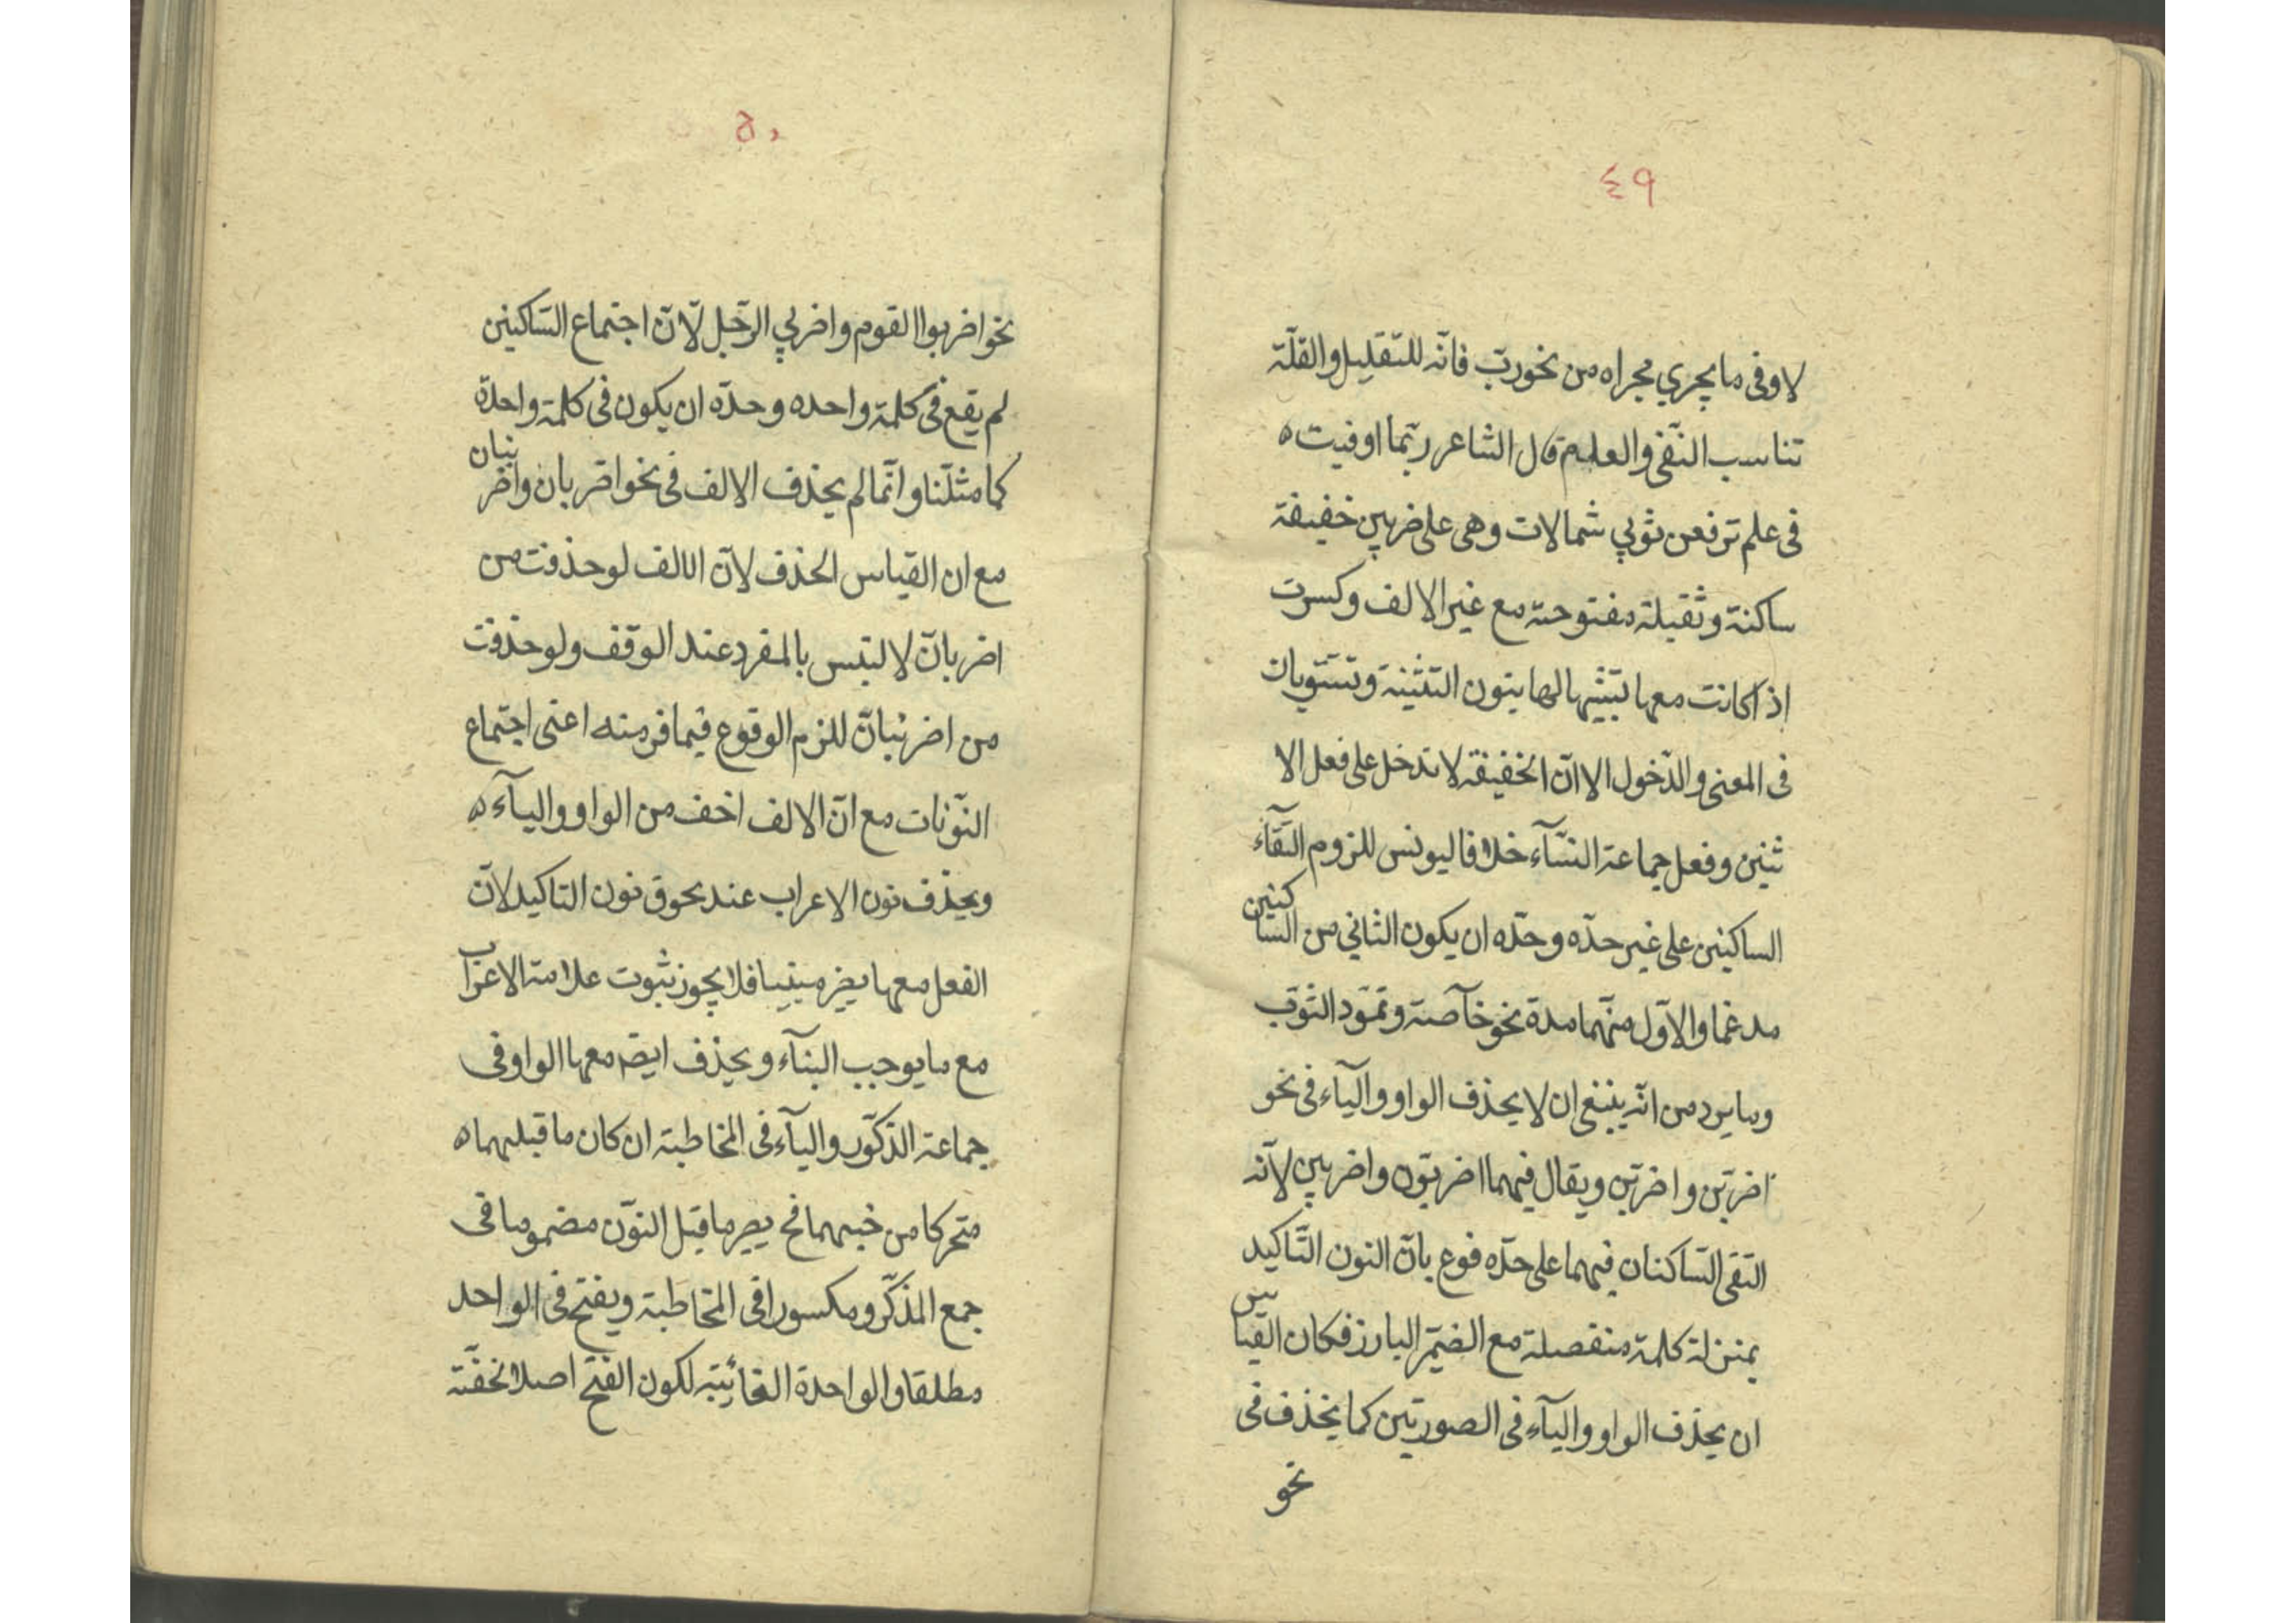 ٤٩
لا وفى ما يجري مجراه من نحو ربّ فانّه للتقليل والقلّة
تناسب النّفى والعلم قال الشاعر ربّما اوفيت ه
فى علم ترفعن ثوبي شمالات وهى على ضربين خفيفة
ساكنة وثقيلة مفتوحة مع غير الالف وكسرت
اذا كانت معها لتشبّهها بنون التثنية وتستويان
فى المعنى والدّخول الا انّ الخفيفة لا تدخل على فعل الا
ثنين وفعل جماعة النسّآء خلافا ليونس للزوم التقآء
الساكنين على غير حدّه وحدّه ان يكون الثاني من الساكنين
مدغما والاوّل منهما مدة نحو خآصة وتموّد الثوب
وما يرد من انّه ينبغى ان لا يحذف الواو واليآء فى نحو
اضربنّ واضربنّ ويقال فيهما اضربونّ واضربين لانّه
التقى السّاكنان فيهما على حدّه فوع بانّ النون التّاكيد
بمنزلة كلمة منفصلة مع الضمّير البارز فكان القياس
ان يحذف الواو واليآء فى الصورتين كما يحذف فى
نحو
٥٠
نحو اضربوا القوم واضربي الرّجل لانّ اجتماع السّاكنين
لم يقع فى كلمة واحده وحدّه ان يكون فى كلمة واحدة
كما مثلّنا وانّما لم يحذف الالف فى نحو اضربان واضربنان
مع ان القياس الحذف لانّ الالف لو حذفت من
اضربانّ لالتبس بالمفرد عند الوقف ولو حذفت
من اضربنانّ للزم الوقوع فيما فر منه اعنى اجتماع
النّونات مع انّ الالف اخف من الواو واليآء ه
ويحذف نون الاعراب عند لحوق نون التاكيد لانّ
الفعل معها يصير مبنيا فلا يجوز ثبوت علامة الاعراب
مع ما يوجب البنآء ويحذف ايضا معها الواو فى
جماعة الذكّور واليآء فى المخاطبة ان كان ما قبلهما ه
متحركا من جنسهما فح يصير ما قبل النوّن مضموما فى
جمع المذّكر ومكسورا فى المخاطبة ويفتح فى الواحد
مطلقا والواحدة الغائبة لكون الفتح اصلا لخفّته